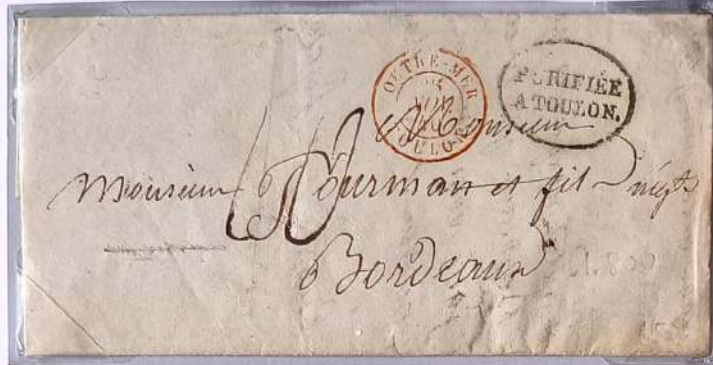 OUTRE-MER
TOULON
PURIFIÉE
A TOULON.
Monsieur
Monsieur Fourman et fils négts
Bordeaux